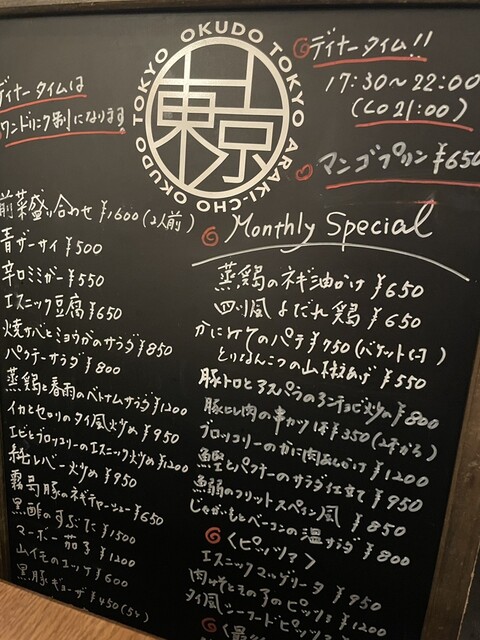 OKUDO TOKYO ARAKI-CHO OKUDO TOKYO
東京
ディナータイム!!
17:30～22:00
(LO 21:00)
マンゴプリン ¥650
ディナータイムは
ワンドリンク制になります
前菜盛り合わせ ¥1600(2人前)
青ザーサイ ¥500
辛口ミミガー ¥550
エスニック豆腐 ¥650
焼ナベとミョウガのサラダ ¥850
パクチーサラダ ¥800
蒸鶏と春雨のベトナムサラダ ¥1200
イカとセロリのタイ風炒め ¥950
エビとブロッコリーのエスニック炒め ¥1200
レバー炒め ¥950
霧島豚のネギチャーシュー ¥650
黒酢のすぶた ¥1500
マーボー茄子 ¥1200
山イモのユッケ ¥600
黒豚ギョーザ ¥450(5ケ)
Monthly Special
蒸鶏のネギ油かけ ¥650
四川風よだれ鶏 ¥650
かにみそのパテ ¥750(バケット付)
とりなんこつの山椒あげ ¥550
豚トロとアスパラのアンチョビ炒め ¥800
豚ヒレ肉の串カツ 1本¥350(2本から)
ブロッコリーのかに肉あんかけ ¥1200
鰹とパクチーのサラダ仕立て ¥950
魚のフリットスペイン風 ¥850
じゃがいもとベーコンの温サラダ ¥800
〈ピッツァ〉
エスニックマルゲリータ ¥950
肉みそときの子のピッツァ ¥1200
タイ風シーフードピッツァ